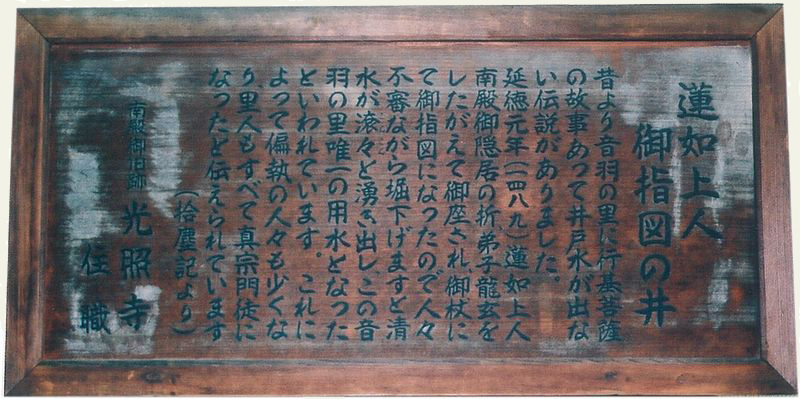 蓮如上人
御指図の井
昔より音羽の里に行基菩薩
の故事あって井戸水が出な
い伝説がありました。
延徳元年(一四八九)蓮如上人
南殿御隠居の折、弟子龍玄を
したがえて御座され、御杖に
て御指図になったので人々
不審ながら堀下げますと清
水が滾々と湧き出しこの音
羽の里唯一の用水となった
といわれています。これに
よって偏執の人々も少くな
り、里人もすべて真宗門徒に
なったと伝えられています
(拾塵記より)
南殿御旧跡 光照寺
住職